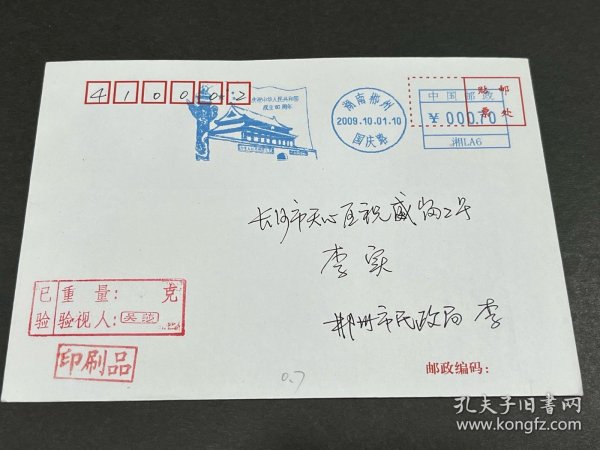 410002
庆祝中华人民共和国
成立60周年
湖南郴州
2009.10.01.10
国庆路
中国邮政
¥000.70
湘LA6
贴邮
票处
长沙市天心区祝威岗2号
李实
郴州市民政局 李
已验
重量： 克
验视人：
印刷品
0.7
邮政编码：
孔夫子旧书网
www.kongfz.com